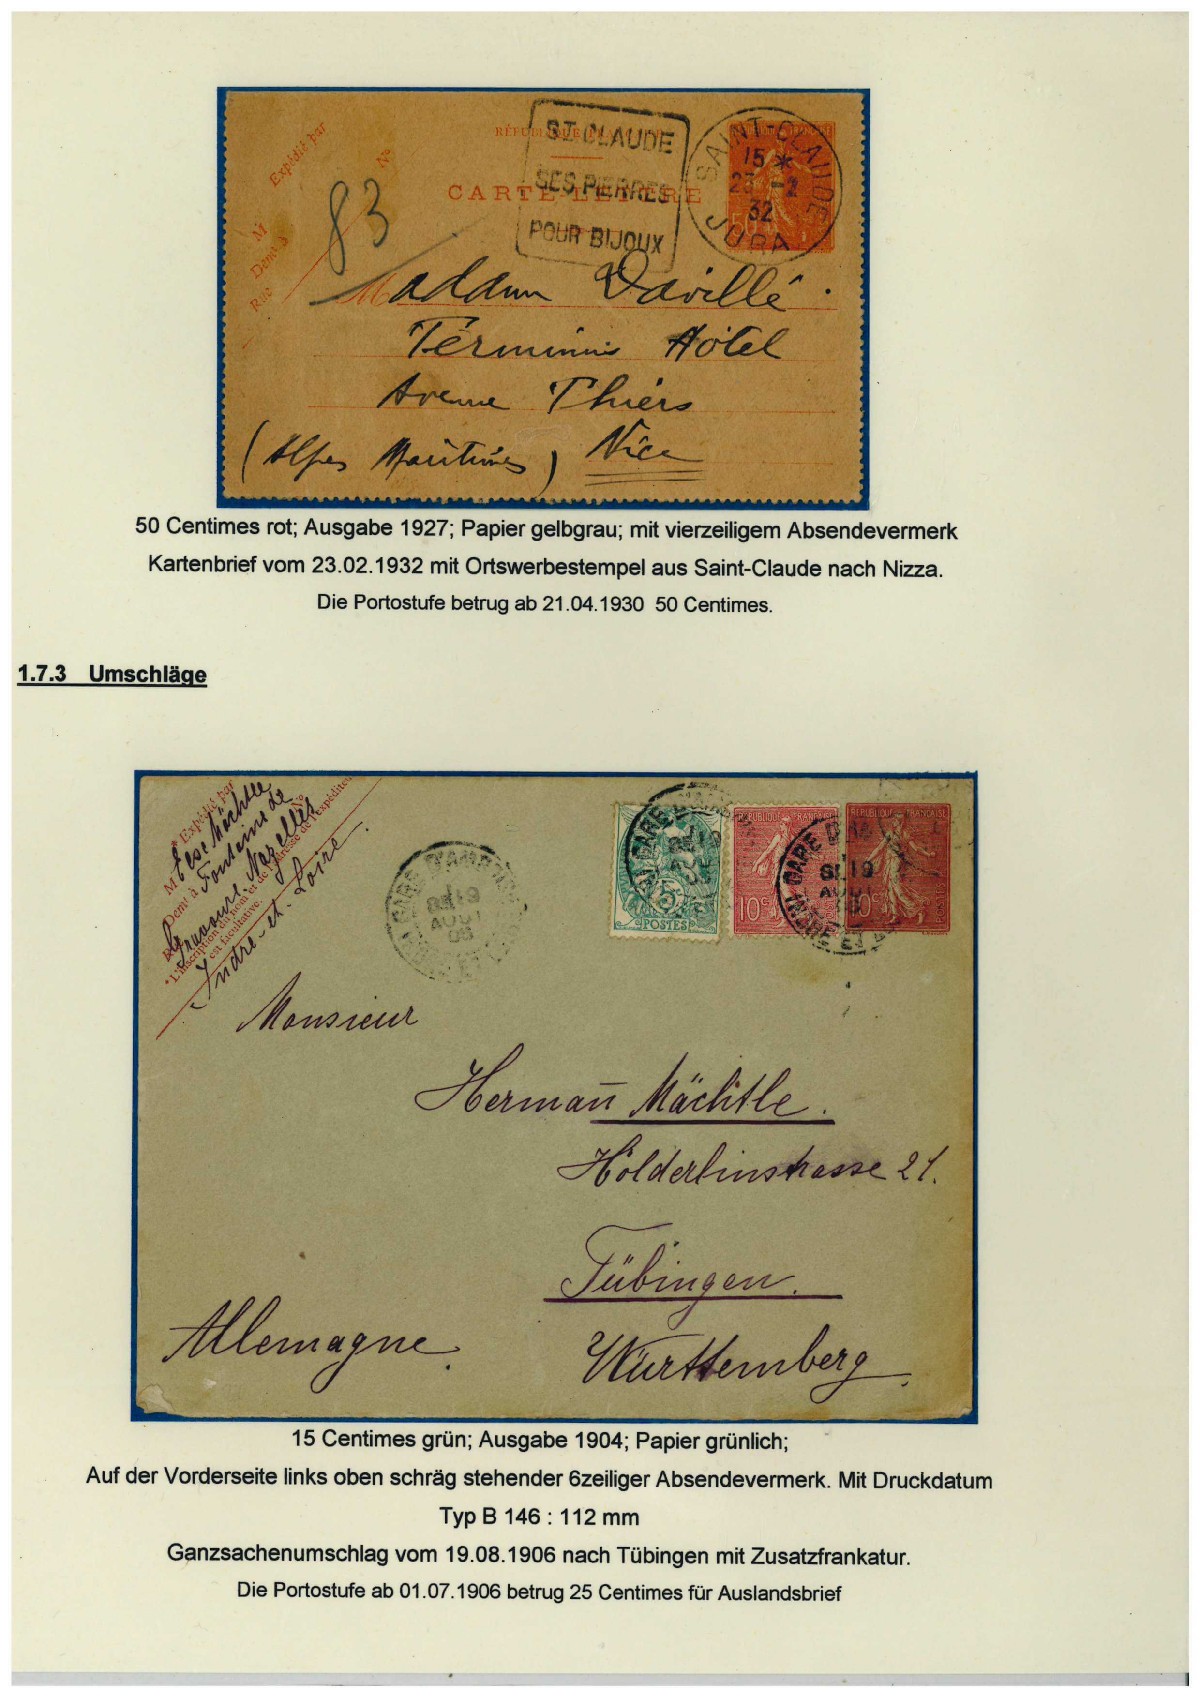 Expédié par
M
Nº
Demt à
Rue
83
RÉPUBLIQUE FRANÇAISE
CARTE-LETTRE
ST CLAUDE
SES PIERRES
POUR BIJOUX
SAINT-CLAUDE
15 *
23 -2
32
JURA
50
Madame Davillé.
Términus Hôtel
Avenue Thiérs
(Alpes Maritimes) Nice
50 Centimes rot; Ausgabe 1927; Papier gelbgrau; mit vierzeiligem Absendevermerk
Kartenbrief vom 23.02.1932 mit Ortswerbestempel aus Saint-Claude nach Nizza.
Die Portostufe betrug ab 21.04.1930 50 Centimes.
1.7.3 Umschläge
* Expédié par
M Else Mächtle
Demt à Fontaine de
Nº
Nazelles
* L'inscription du nom et de l'adresse de l'expéditeur
est facultative.
Indre-et-Loire.
GARE D'AMB
19
AOUT
5
POSTES
REPUBLIQUE FRANÇAISE
10c
GARE D'AM
19
AOUT
INDRE ET
REPUBLIQUE FRANÇAISE
10c
POSTES
Monsieur
Hermañ Mächtle.
Hölderlinstrasse 21.
Tübingen.
Allemagne.
Württemberg.
15 Centimes grün; Ausgabe 1904; Papier grünlich;
Auf der Vorderseite links oben schräg stehender 6zeiliger Absendevermerk. Mit Druckdatum
Typ B 146 : 112 mm
Ganzsachenumschlag vom 19.08.1906 nach Tübingen mit Zusatzfrankatur.
Die Portostufe ab 01.07.1906 betrug 25 Centimes für Auslandsbrief